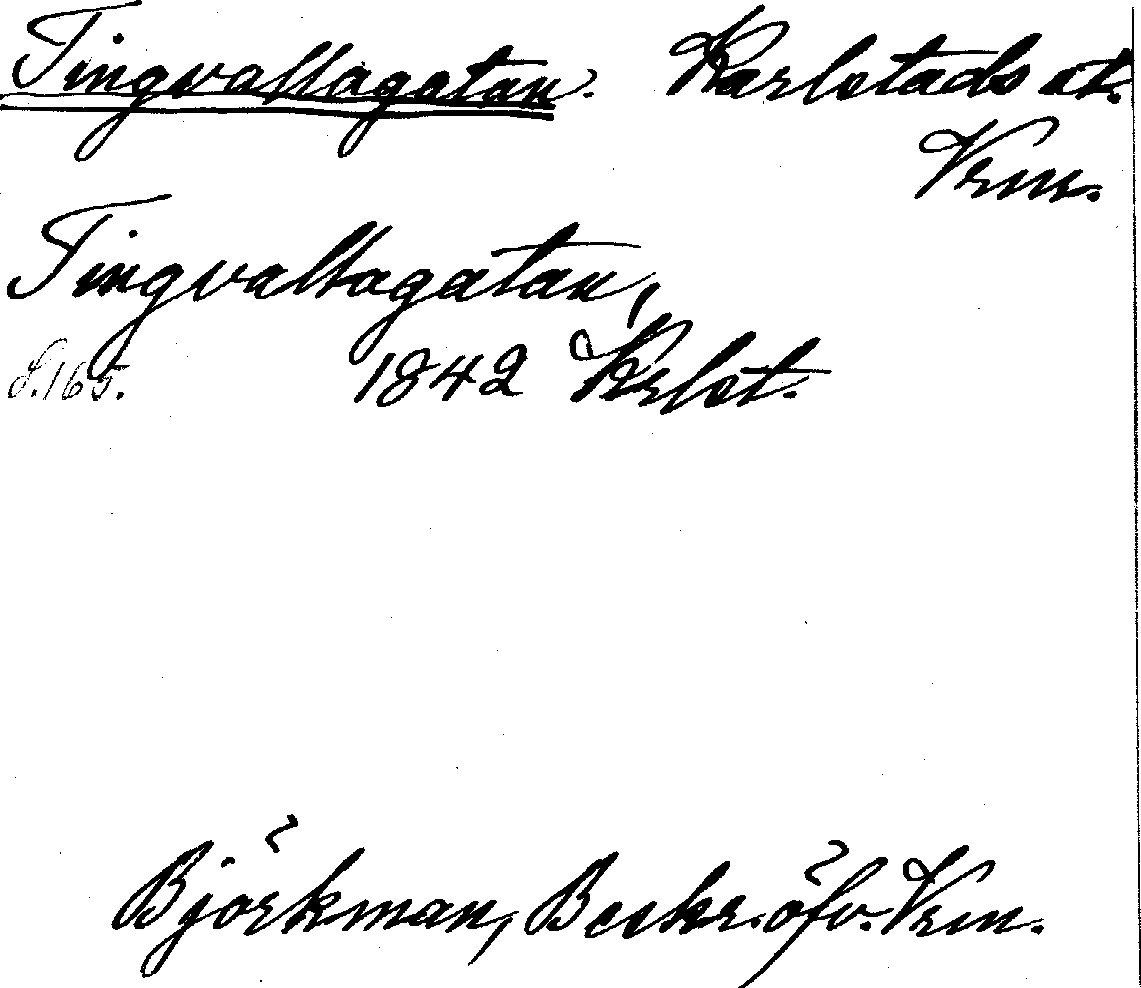 Tingvallagatan. Karlstads st.
Vrm.
Tingvallagatan,
S. 165. 1842 Krlst.
Björkman, Beskr. öfv. Vrm.